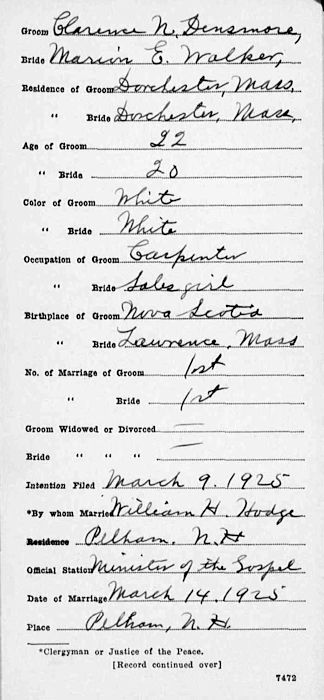 Groom Clarence N. Densmore,
Bride Marion E. Walker,
Residence of Groom Dorchester, Mass,
" Bride Dorchester, Mass,
Age of Groom 22
" Bride 20
Color of Groom White
" Bride White
Occupation of Groom Carpenter
" Bride Salesgirl
Birthplace of Groom Nova Scotia
" Bride Lawrence, Mass
No. of Marriage of Groom 1st
" Bride 1st
Groom Widowed or Divorced —
Bride " " " —
Intention Filed March 9. 1925
*By whom Married William H. Hodge
Residence Pelham. N.H
Official Station Minister of the Gospel
Date of Marriage March 14. 1925
Place Pelham, N.H.
*Clergyman or Justice of the Peace.
[Record continued over]
7472